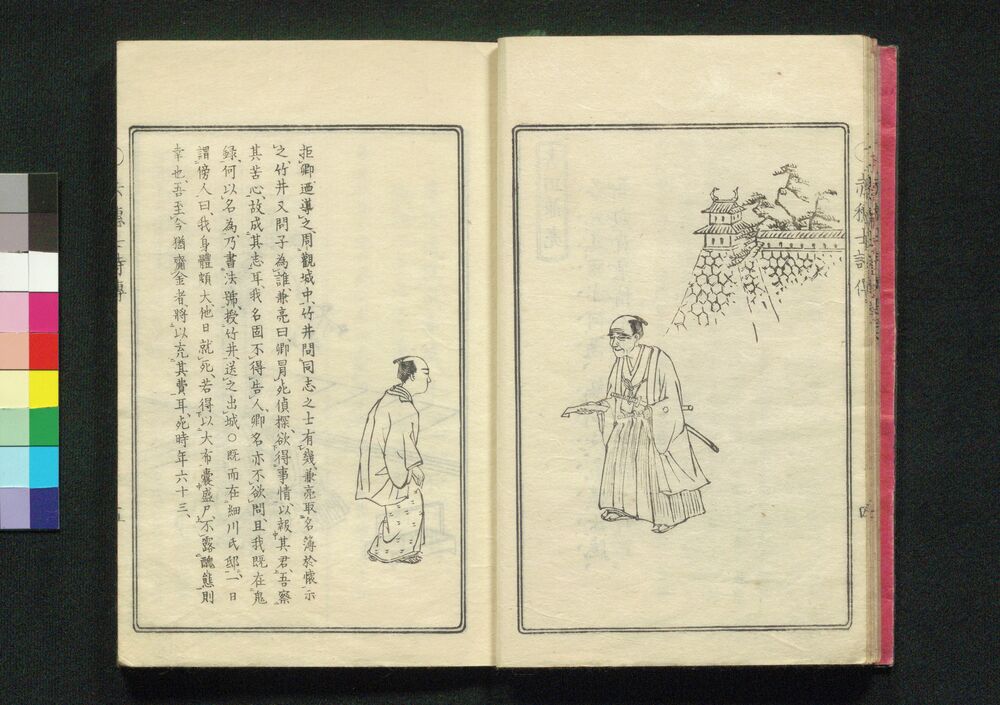 赤穂士詩傳
四
拒卿逥導之周觀城中竹井問同志之士有幾兼亮取名簿於懷示
之竹井又問子為誰兼亮曰卿冒死偵探欲得事情以報其君吾察
其苦心故成其志耳我名固不得告人卿名亦不欲問且我既在鬼
録何以名為乃書法號授竹井送之出城〇既而在細川氏邸一日
謂傍人曰我身體頗大他日就死若得以大布囊盛尸不露醜態則
幸也吾至今猶齎金者將以充其費耳死時年六十三